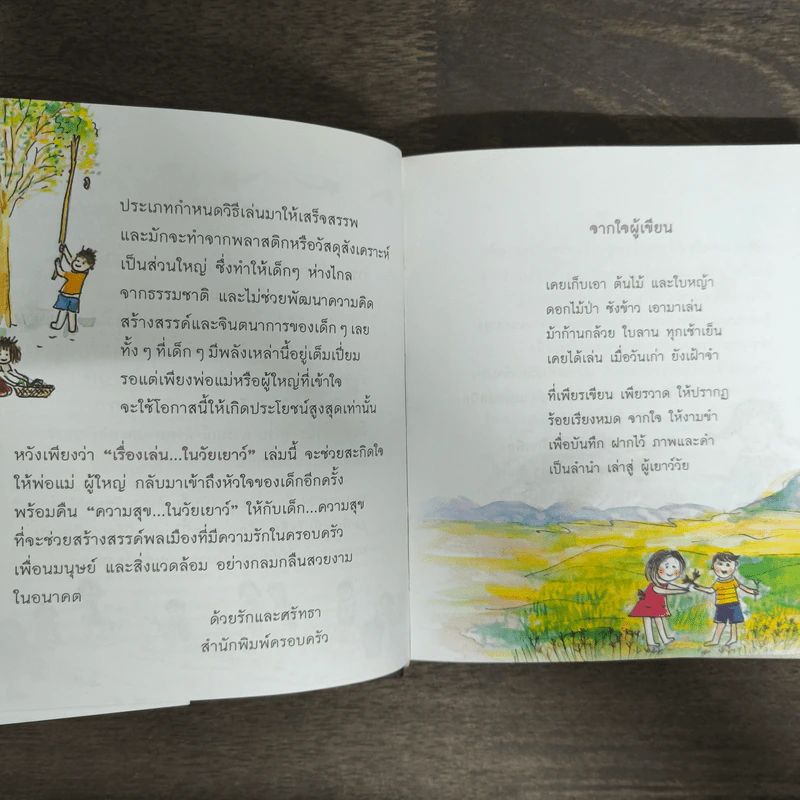 ประเภทกำหนดวิธีเล่นมาให้เสร็จสรรพ
และมักจะทำจากพลาสติกหรือวัสดุสังเคราะห์
เป็นส่วนใหญ่ ซึ่งทำให้เด็กๆ ห่างไกล
จากธรรมชาติ และไม่ช่วยพัฒนาความคิด
สร้างสรรค์และจินตนาการของเด็ก ๆ เลย
ทั้ง ๆ ที่เด็ก ๆ มีพลังเหล่านี้อยู่เต็มเปี่ยม
รอแต่เพียงพ่อแม่หรือผู้ใหญ่ที่เข้าใจ
จะใช้โอกาสนี้ให้เกิดประโยชน์สูงสุดเท่านั้น
หวังเพียงว่า “เรื่องเล่น...ในวัยเยาว์” เล่มนี้ จะช่วยสะกิดใจ
ให้พ่อแม่ ผู้ใหญ่ กลับมาเข้าถึงหัวใจของเด็กอีกครั้ง
พร้อมคืน “ความสุข...ในวัยเยาว์” ให้กับเด็ก...ความสุข
ที่จะช่วยสร้างสรรค์พลเมืองที่มีความรักในครอบครัว
เพื่อนมนุษย์ และสิ่งแวดล้อม อย่างกลมกลืนสวยงาม
ในอนาคต
ด้วยรักและศรัทธา
สำนักพิมพ์ครอบครัว
จากใจผู้เขียน
เคยเก็บเอา ต้นไม้ และใบหญ้า
ดอกไม้ป่า ซังข้าว เอามาเล่น
ม้าก้านกล้วย ใบลาน ทุกเช้าเย็น
เคยได้เล่น เมื่อวันเก่า ยังเฝ้าจำ
ที่เพียรเขียน เพียรวาด ให้ปรากฏ
ร้อยเรียงหมด จากใจ ให้งามขำ
เพื่อบันทึก ฝากไว้ ภาพและคำ
เป็นลำนำ เล่าสู่ ผู้เยาว์วัย